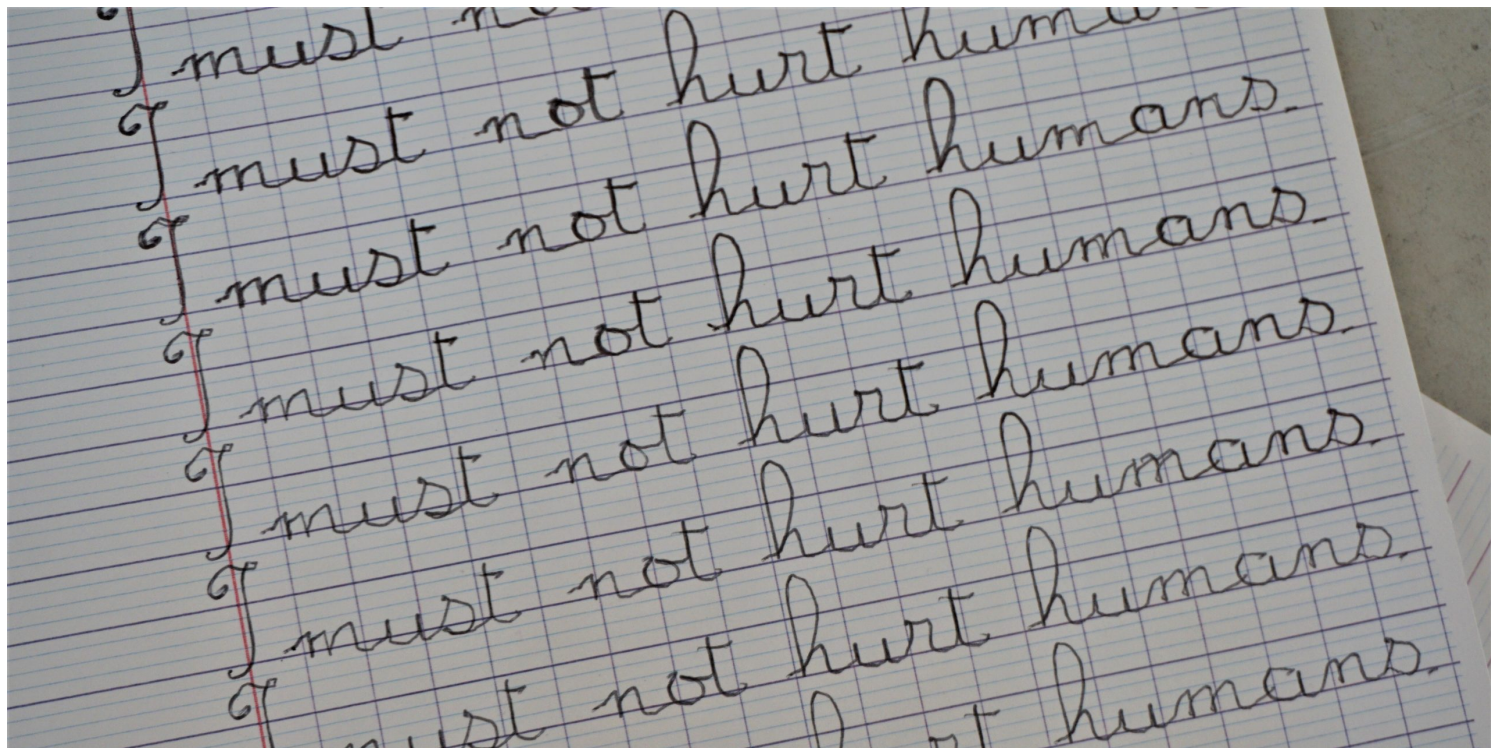 I must no
I must not hurt huma
I must not hurt humans.
I must not hurt humans.
I must not hurt humans.
I must not hurt humans.
I must not hurt humans.
hurt humans.